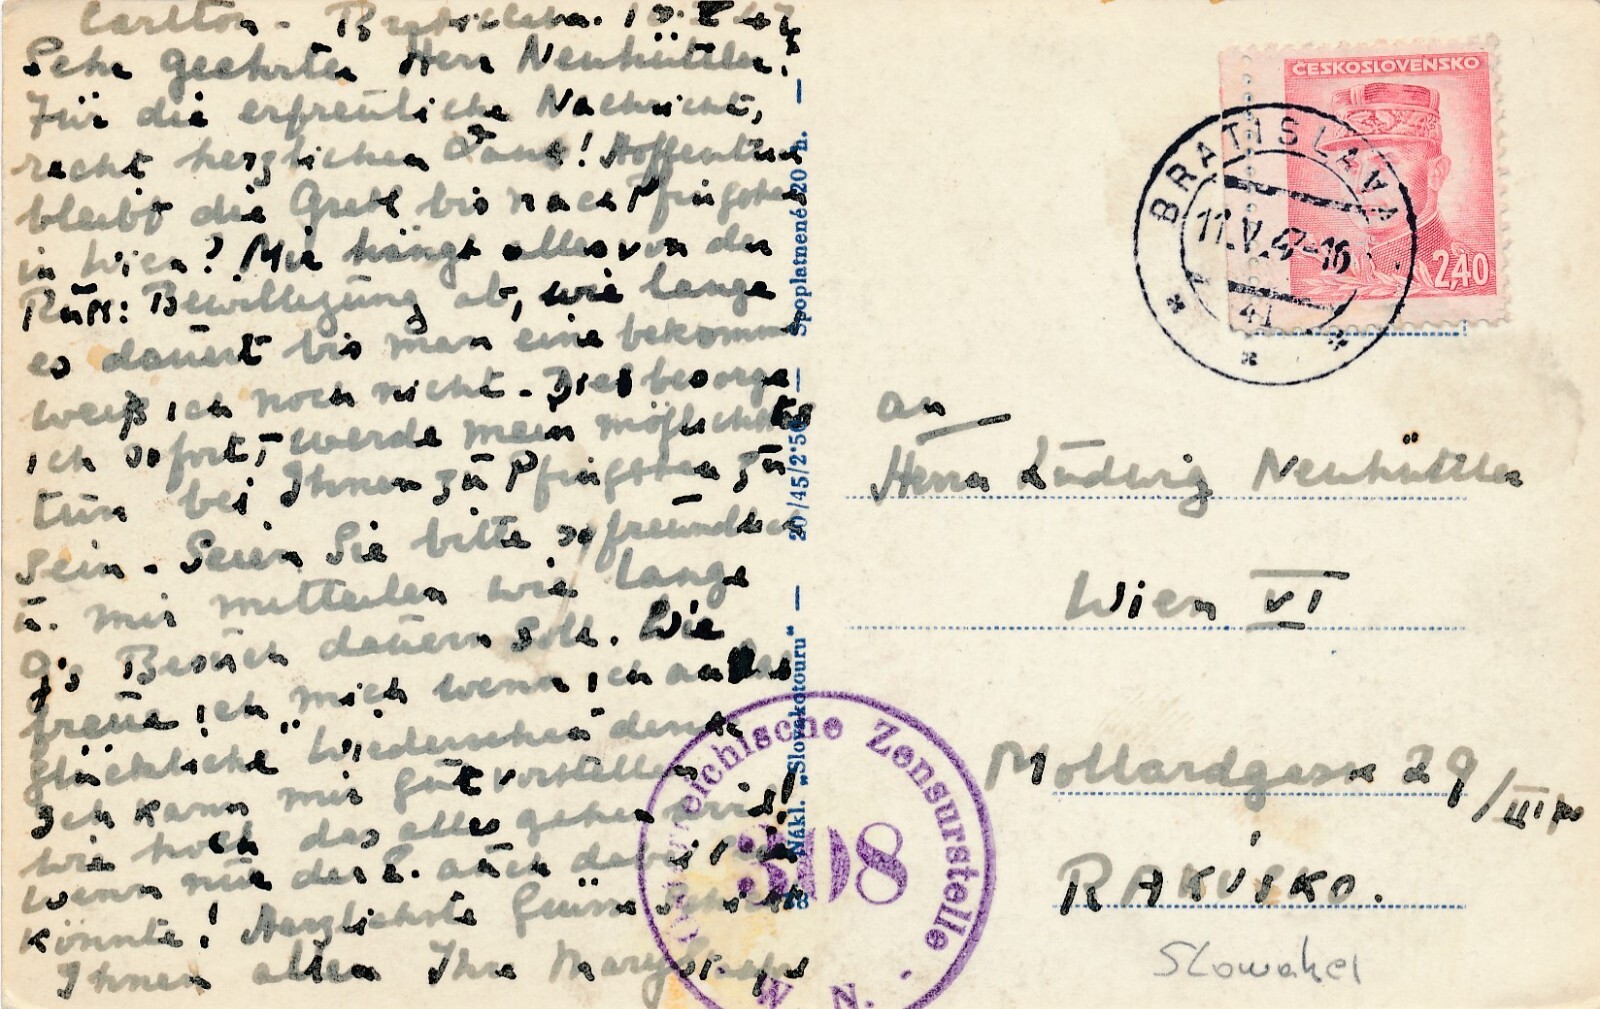 Carlton - Bratislava. 10.V.47
Sehr geehrter Herr Neuhüttler!
Für die erfreuliche Nachricht,
recht herzlichen Dank! Hoffentlich
bleibt die Gretl bis nach Pfingsten
in Wien? Mir hängt alles von der
Bewilligung ab, wie lange
es dauert bis man eine bekommt
weiß ich noch nicht. Dies besorge
ich sofort, werde mein möglichstes
tun bei Ihnen zu Pfingsten zu
sein. Seien Sie bitte so freundlich
u. mir mitteilen wie lange
G's Besuch dauern soll. Wie
freue ich mich wenn ich an das
glückliche "Wiedersehen" denke
Ich kann mir gut vorstellen
wie hoch das alles gehen wird!
wenn nur der E. auch dabei sein
könnte! Herzlichste Grüsse
Ihnen allen Ihre Mary
Nákl. „Slovakotouru“ — 20/45/2'50 — Spoplatnené 20 h. —
ČESKOSLOVENSKO
2,40
BRATISLAVA
11.V.47-16
41
an
Herrn Ludwig Neuhüttler
Wien VI
Mollardgasse 29/III
RAKÚSKO.
Slowakei
Österreichische Zensurstelle
308
N.